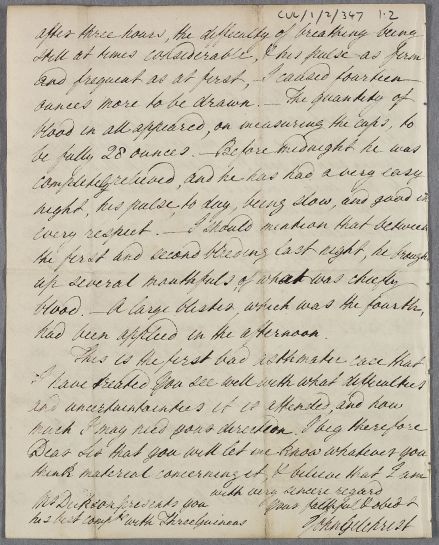 CUL/1/2/347 p.2
after three hours, the difficulty of breathing being
still at times considerable, & his pulse as firm
and frequent as at first, I caused fourteen
ounces more to be drawn. — The quantity of
blood in all appeared, on measuring the cups, to
be fully 28 ounces. — Before midnight he was
completely relieved, and he has had a very easy
night, his pulse, to day, being slow, and good in
every respect. — I should mention that between
the first and second bleeding last night, he brought
up several mouthfuls of what was chiefly
blood. — A large blister, which was the fourth,
had been applied in the afternoon.
This is the first bad asthmatic case that
I have treated. You see well with what difficulties
and uncertainties it is attended, and how
much I may need your direction. I beg therefore
Dear Sir that you will let me know whatever you
think material concerning it, & believe that I am
with very sincere regard
Mr Dickson presents you your faithful & obedt
his best compts with Three Guineas John Gilchrist